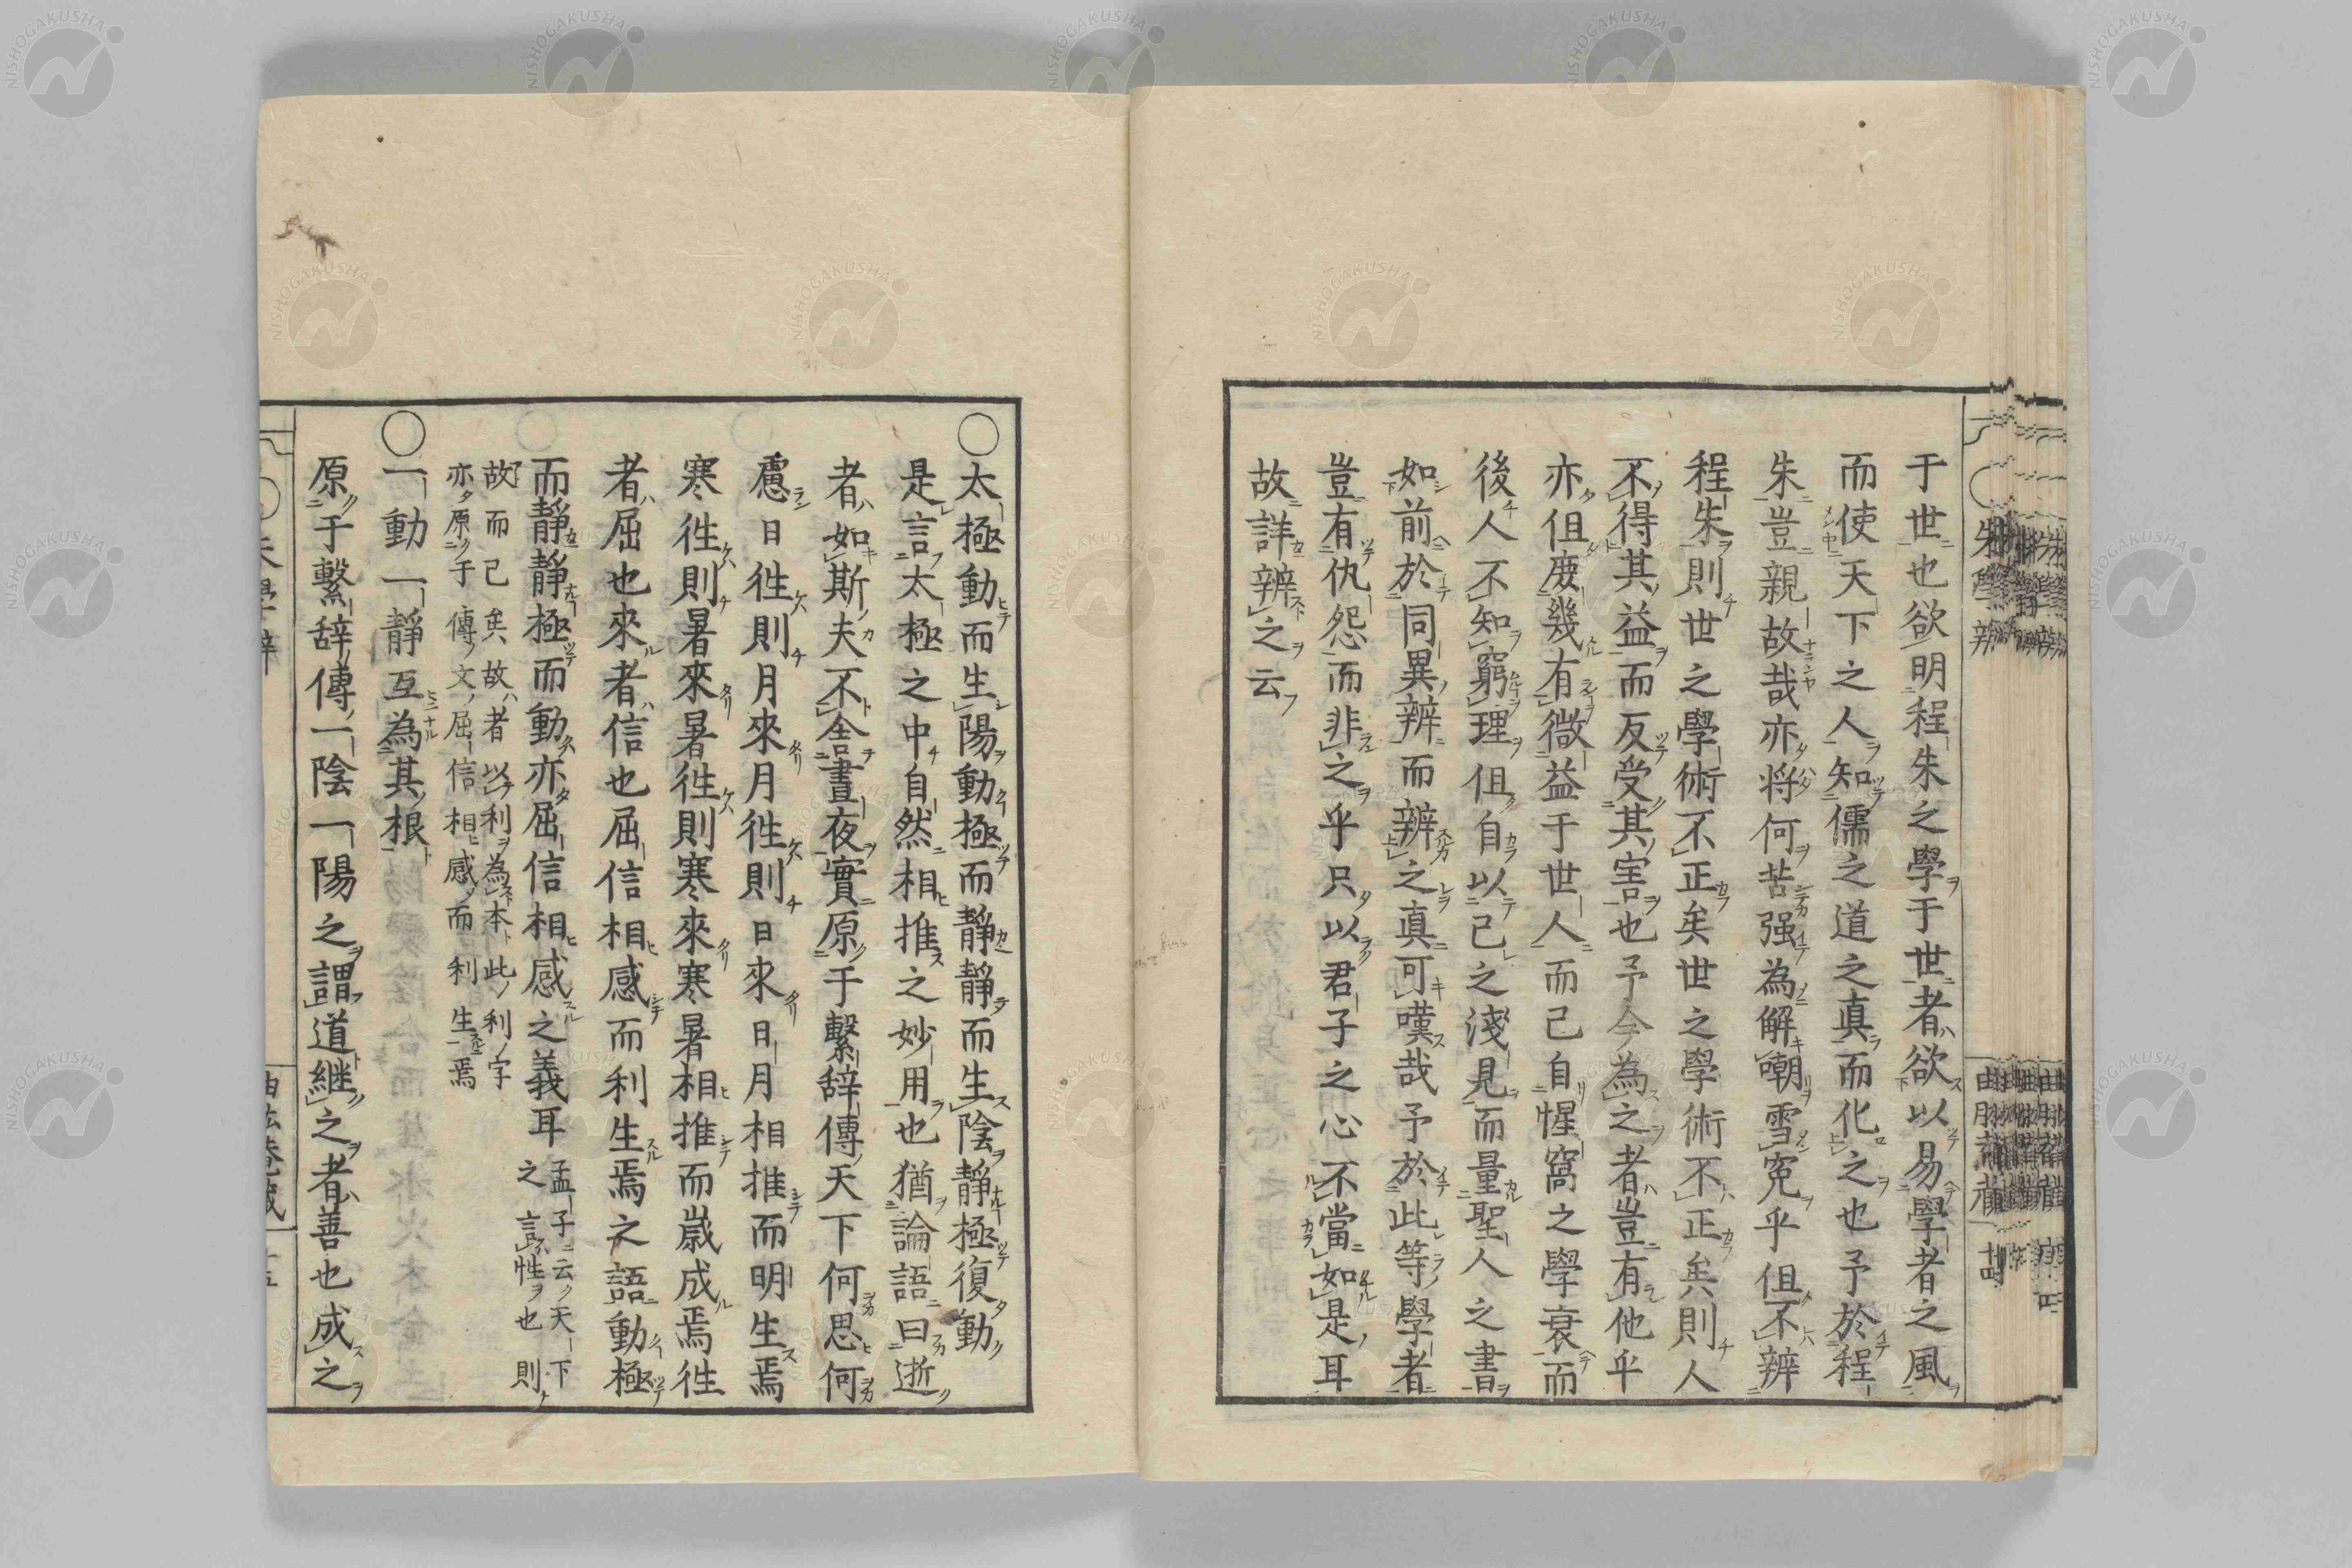 于世也欲明程朱之學于世者欲以易學者之風
而使天下之人知儒之道之真而化之也予於程
朱豈親故哉亦将何苦强為解嘲雪寃乎但不辨
程朱則世之學術不正矣世之學術不正矣則人
不得其益而反受其害也予今為之者豈有他乎
亦但庻幾有微益于世人而已自惺窩之學衰而
後人不知窮理但自以己之淺見而量聖人之書
如前於同異辨而辨之真可嘆哉予於此等學者
豈有仇怨而非之乎只以君子之心不當如是耳
故詳辨之云
○太極動而生陽動極而靜靜而生陰靜極復動
是言太極之中自然相推之妙用也猶論語曰逝
者如斯夫不舍晝夜實原于繫辞傳天下何思何
慮日徃則月來月徃則日來日月相推而明生焉
寒徃則暑來暑徃則寒來寒暑相推而嵗成焉徃
者屈也來者信也屈信相感而利生焉之語動極
而靜靜極而動亦屈信相感之義耳 孟子云天下
之言性也則
故而已矣故者以利為本此利字
亦原于傳文屈信相感而利生焉
○一動一靜互為其根
原于繫辞傳一陰一陽之謂道継之者善也成之
朱學辨
十四
NISHOGAKUSHA